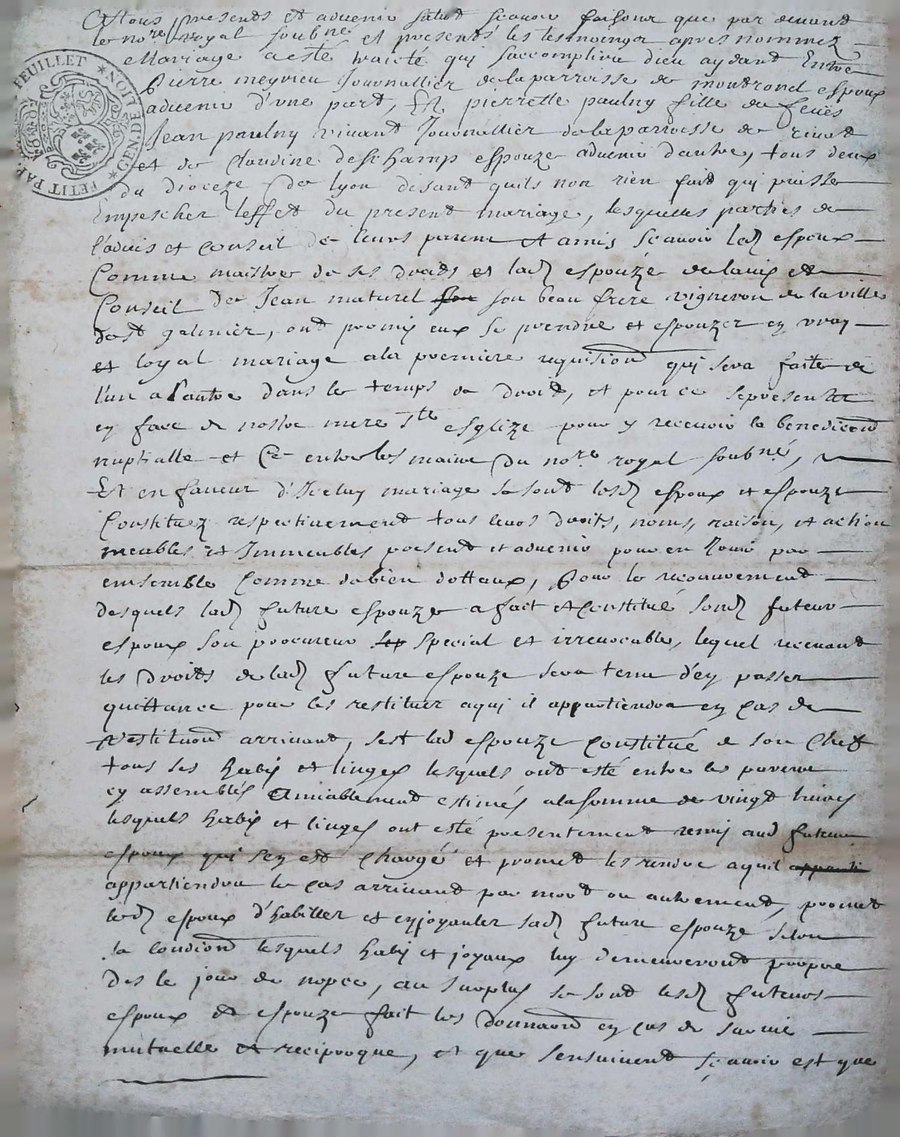 A tous presents et advenir salut scavoir faisons que par devant
le no.re royal soubné et presents les tesmoingz apres nommez
Mariage a esté traicté qui saccomplira dieu aydant Entre
Pierre meyrieu Journallier de la parroisse de montrond espoux
PETIT PAP FEUILLET * GEN.DE LION *
advenir d'une part, Et pierrette paulny fille de feüs
Jean paulny vivant Journallier de la parroisse de
et de Claudine deschamp espouze advenir dautre, tous deux
du dioceze de lyon disant quils non rien fait qui puisse
Empescher leffet du present mariage, lesquelles parties de
l'advis et Conseil de leurs parens et amis scavoir led espoux
Comme maistre de ses droits et lad espouze de lavis et
Conseil de Jean maturel son beau frere vigneron de la ville
de st galmier, ont promis eux se prendre et espouzer en vray
et loyal mariage a la premiere requisition qui sera faitte de
l'un a l'autre dans le temps de droit, et pour ce se presenter
en face de nostre mere s.te esglize pour y recevoir la benediction
nuptialle et Ce entre les mains du no.re royal soubné,
Et en faveur d'Iceluy mariage se sont lesd espoux et espouze
Constituez respectivement tous leurs droits, noms, raison, et action
meubles et Immeubles present et advenir pour en Jouir par
ensemble Comme de bien dottaux, Pour le recouvrement
desquels lad future espouze a fait et Constitué sond futeur
espoux son procureur special et irrevocable, lequel recevant
les droits de lad future espouze sera tenu d'en passer
quittance pour les restituer a qui il appartiendra en cas de
restitution arrivant, s'est lad espouze Constitué de son Cheff
tous ses habis et linges lesquels ont esté entre les parens
en assemblés Amiablement estimés a la somme de vingt livres
lesquels habis et linges ont esté presentement remis aud futeur
espoux qui s'en est Chargé et promet les rendre a qui il
appartiendra le cas arrivant par mort ou autrement, promet
led espoux d'habiller et enjoyauler sad future espouze selon
sa condition lesquels habis et joyaux luy demeureront propre
des le jour de nopce, au surplus se sont lesd futeurs
espoux et espouze fait les donnaons en cas de survie
mutuelle et reciproque, et que sensuivent scavoir est que